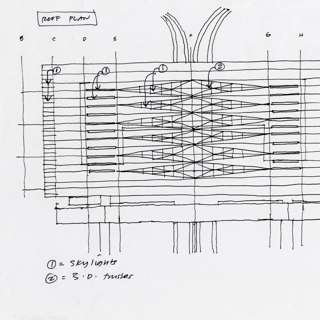 ROOF PLAN
B C D E F G H
① ① ① ②
① = SKYLIGHTS
② = 3.D. trusses